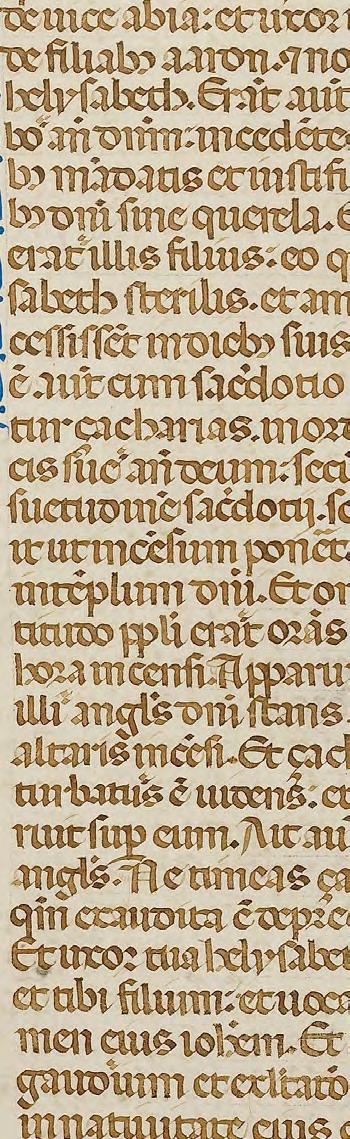 de uice abia: et uxor
de filiab; aaron. ⁊ no
helysabeth. Erāt aūt
bo añ dñm: incedētes
b; mādatis et iustifi
b; dñi sine querela. E
erat illis filius: eo q
sabeth sterilis. et am
cessissēt in dieb; suis
ē. aūt cum sac̄dotio
tur çacharias. in ord
cis sue añ deum: secū
suetudinē sac̄dotij. so
ut ut incēsum ponēt
in tēplum dñi. Et om
titudo ppli erat orās
hora incensi. Apparu
illi angl̄s dñi stans.
altaris incēsi. Et çach
turbatus ē uidens: et
ruit sup eum. Ait aū
angl̄s. Ne timeas ça
qm̄ exaudita ē depr̄c
Et uxor tua helysabe
et tibi filium: et uoca
men eius ioh̄em. Et
gaudium et exultatō
in natiuitate eius